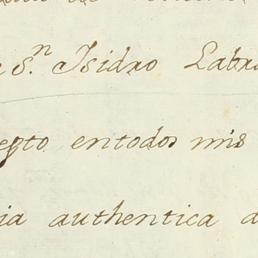 S.n Isidro Labra
epto entodos mis
ia authentica d